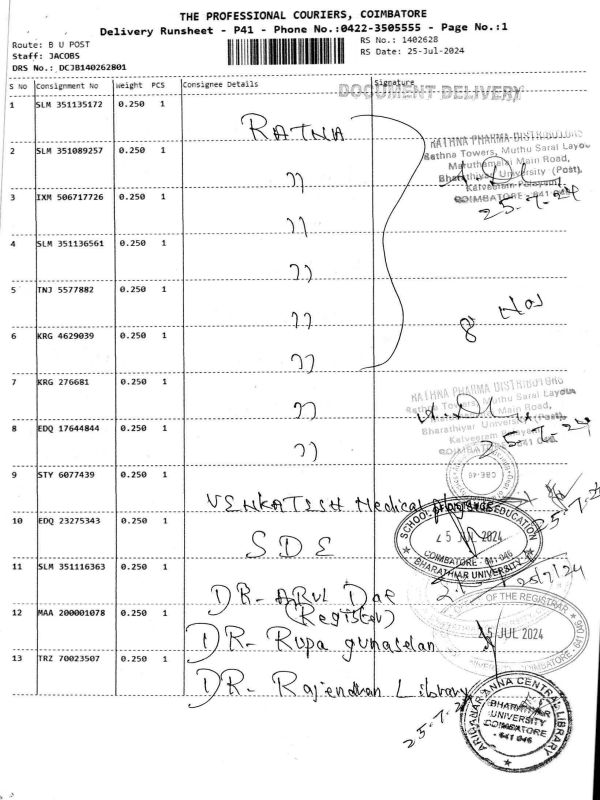 THE PROFESSIONAL COURIERS, COIMBATORE
Delivery Runsheet - P41 - Phone No.:0422-3505555 - Page No.:1
Route: B U POST
RS No.: 1402628
Staff: JACOBS
RS Date: 25-Jul-2024
DRS No.: DCJB140262801
S No Consignment No Weight PCS Consignee Details Signature
DOCUMENT DELIVERY
1 SLM 351135172 0.250 1 RATNA
RATHNA PHARMA DISTRIBUTORS
Rathna Towers, Muthu Sarai Layou
Maruthamalai Main Road,
Bharathiyar University (Post),
Kalveeram Palayam,
COIMBATORE - 641 046
25-7-24
2 SLM 351089257 0.250 1 "
3 IXM 506717726 0.250 1 "
4 SLM 351136561 0.250 1 "
5 TNJ 5577882 0.250 1 "
8 Nos
6 KRG 4629039 0.250 1 "
7 KRG 276681 0.250 1 "
RATHNA PHARMA DISTRIBUTORS
Rathna Towers, Muthu Sarai Layou
Main Road,
Bharathiyar University (Post),
Kalveeram Palayam
COIMBATORE - 641 046
25-7-24
8 EDQ 17644844 0.250 1 "
CBE-46
9 STY 6077439 0.250 1 VENKATESH Medical
25.7.24
10 EDQ 23275343 0.250 1 SDE
SCHOOL OF DISTANCE EDUCATION
25 JUL 2024
COIMBATORE - 641 046
BHARATHIAR UNIVERSITY
11 SLM 351116363 0.250 1 DR- ARUL
(Register)
25/7/24
OF THE REGISTRAR
12 MAA 200001078 0.250 1 DR- Rupa gunaselan
25 JUL 2024
13 TRZ 70023507 0.250 1 DR- Rajendran Library
25.7.24
ARIGNAR ANNA CENTRAL LIBRARY
BHARATHIAR
UNIVERSITY
COIMBATORE
- 641 046